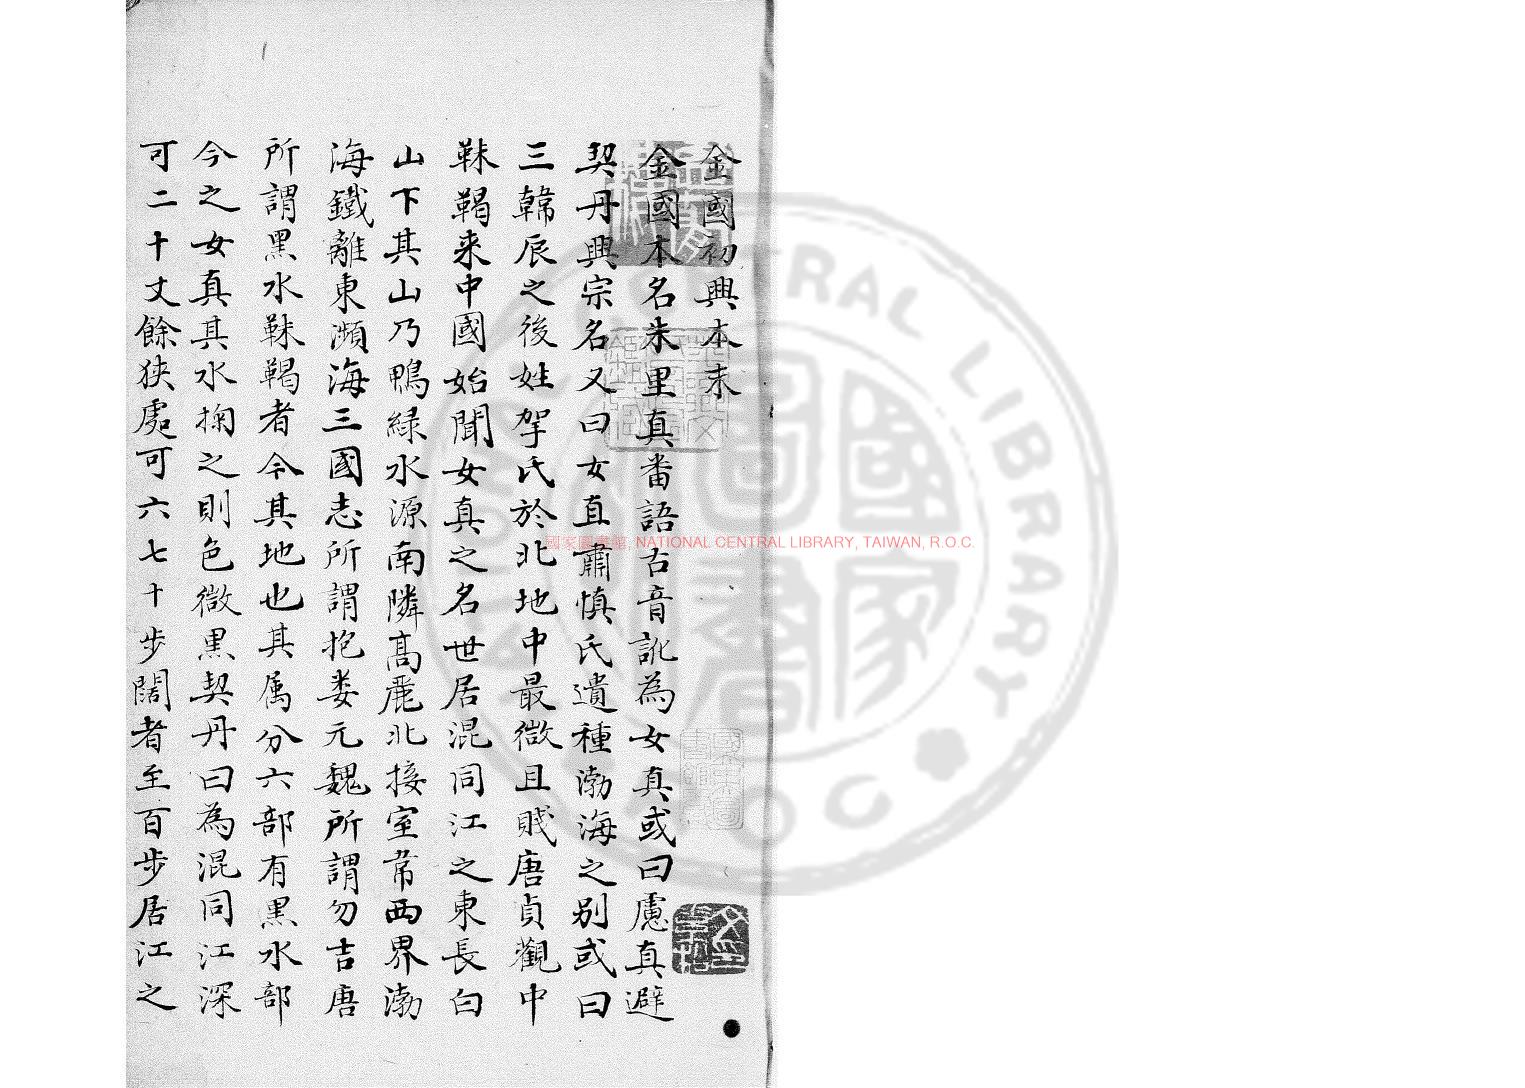 金國初興本末
金國本名朱里真番語古音訛為女真或曰慮真避
契丹興宗名又曰女直肅慎氏遺種渤海之別或曰
三韓辰之後姓挐氏於北地中最微且賤唐貞觀中
靺鞨来中國始聞女真之名世居混同江之東長白
山下其山乃鴨緑水源南隣髙麗北接室韋西界渤
海鐵離東瀕海三國志所謂挹婁元魏所謂勿吉唐
所謂黑水靺鞨者今其地也其属分六部有黒水部
今之女真其水掬之則色微黒契丹曰為混同江深
可二十丈餘狹處可六七十步闊者至百步居江之
國家圖書館, NATIONAL CENTRAL LIBRARY, TAIWAN, R.O.C.
NATIONAL CENTRAL LIBRARY
R.O.C.
國家圖書館